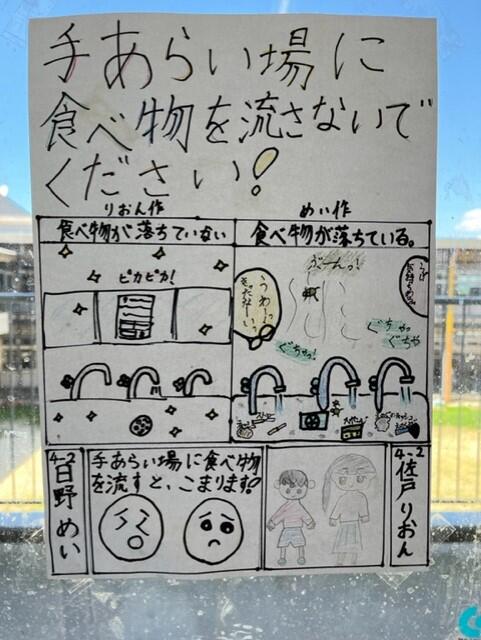 手あらい場に
食べ物を流さないで
ください!
りおん作
めい作
食べ物が落ちていない
食べ物が落ちている。
ピカピカ!
ぶーん。!
うわーっ
きったなーい
ぐちゃっ
ぐちゃ
ぐちゃっ!
ストロー
4-2
日野めい
手あらい場に食べ物
を流すと、こまります!
4-2
佐戸りおん